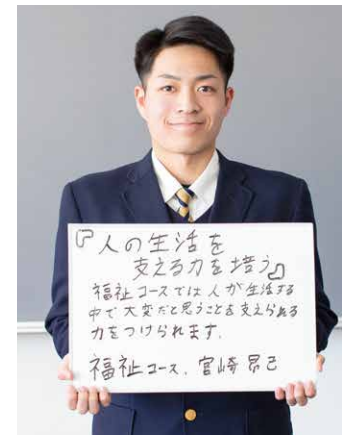 『人の生活を
支える力を培う』
福祉コースでは人が生活する
中で大変だと思うことを支えられる
力をつけられます。
福祉コース、宮崎 昂己